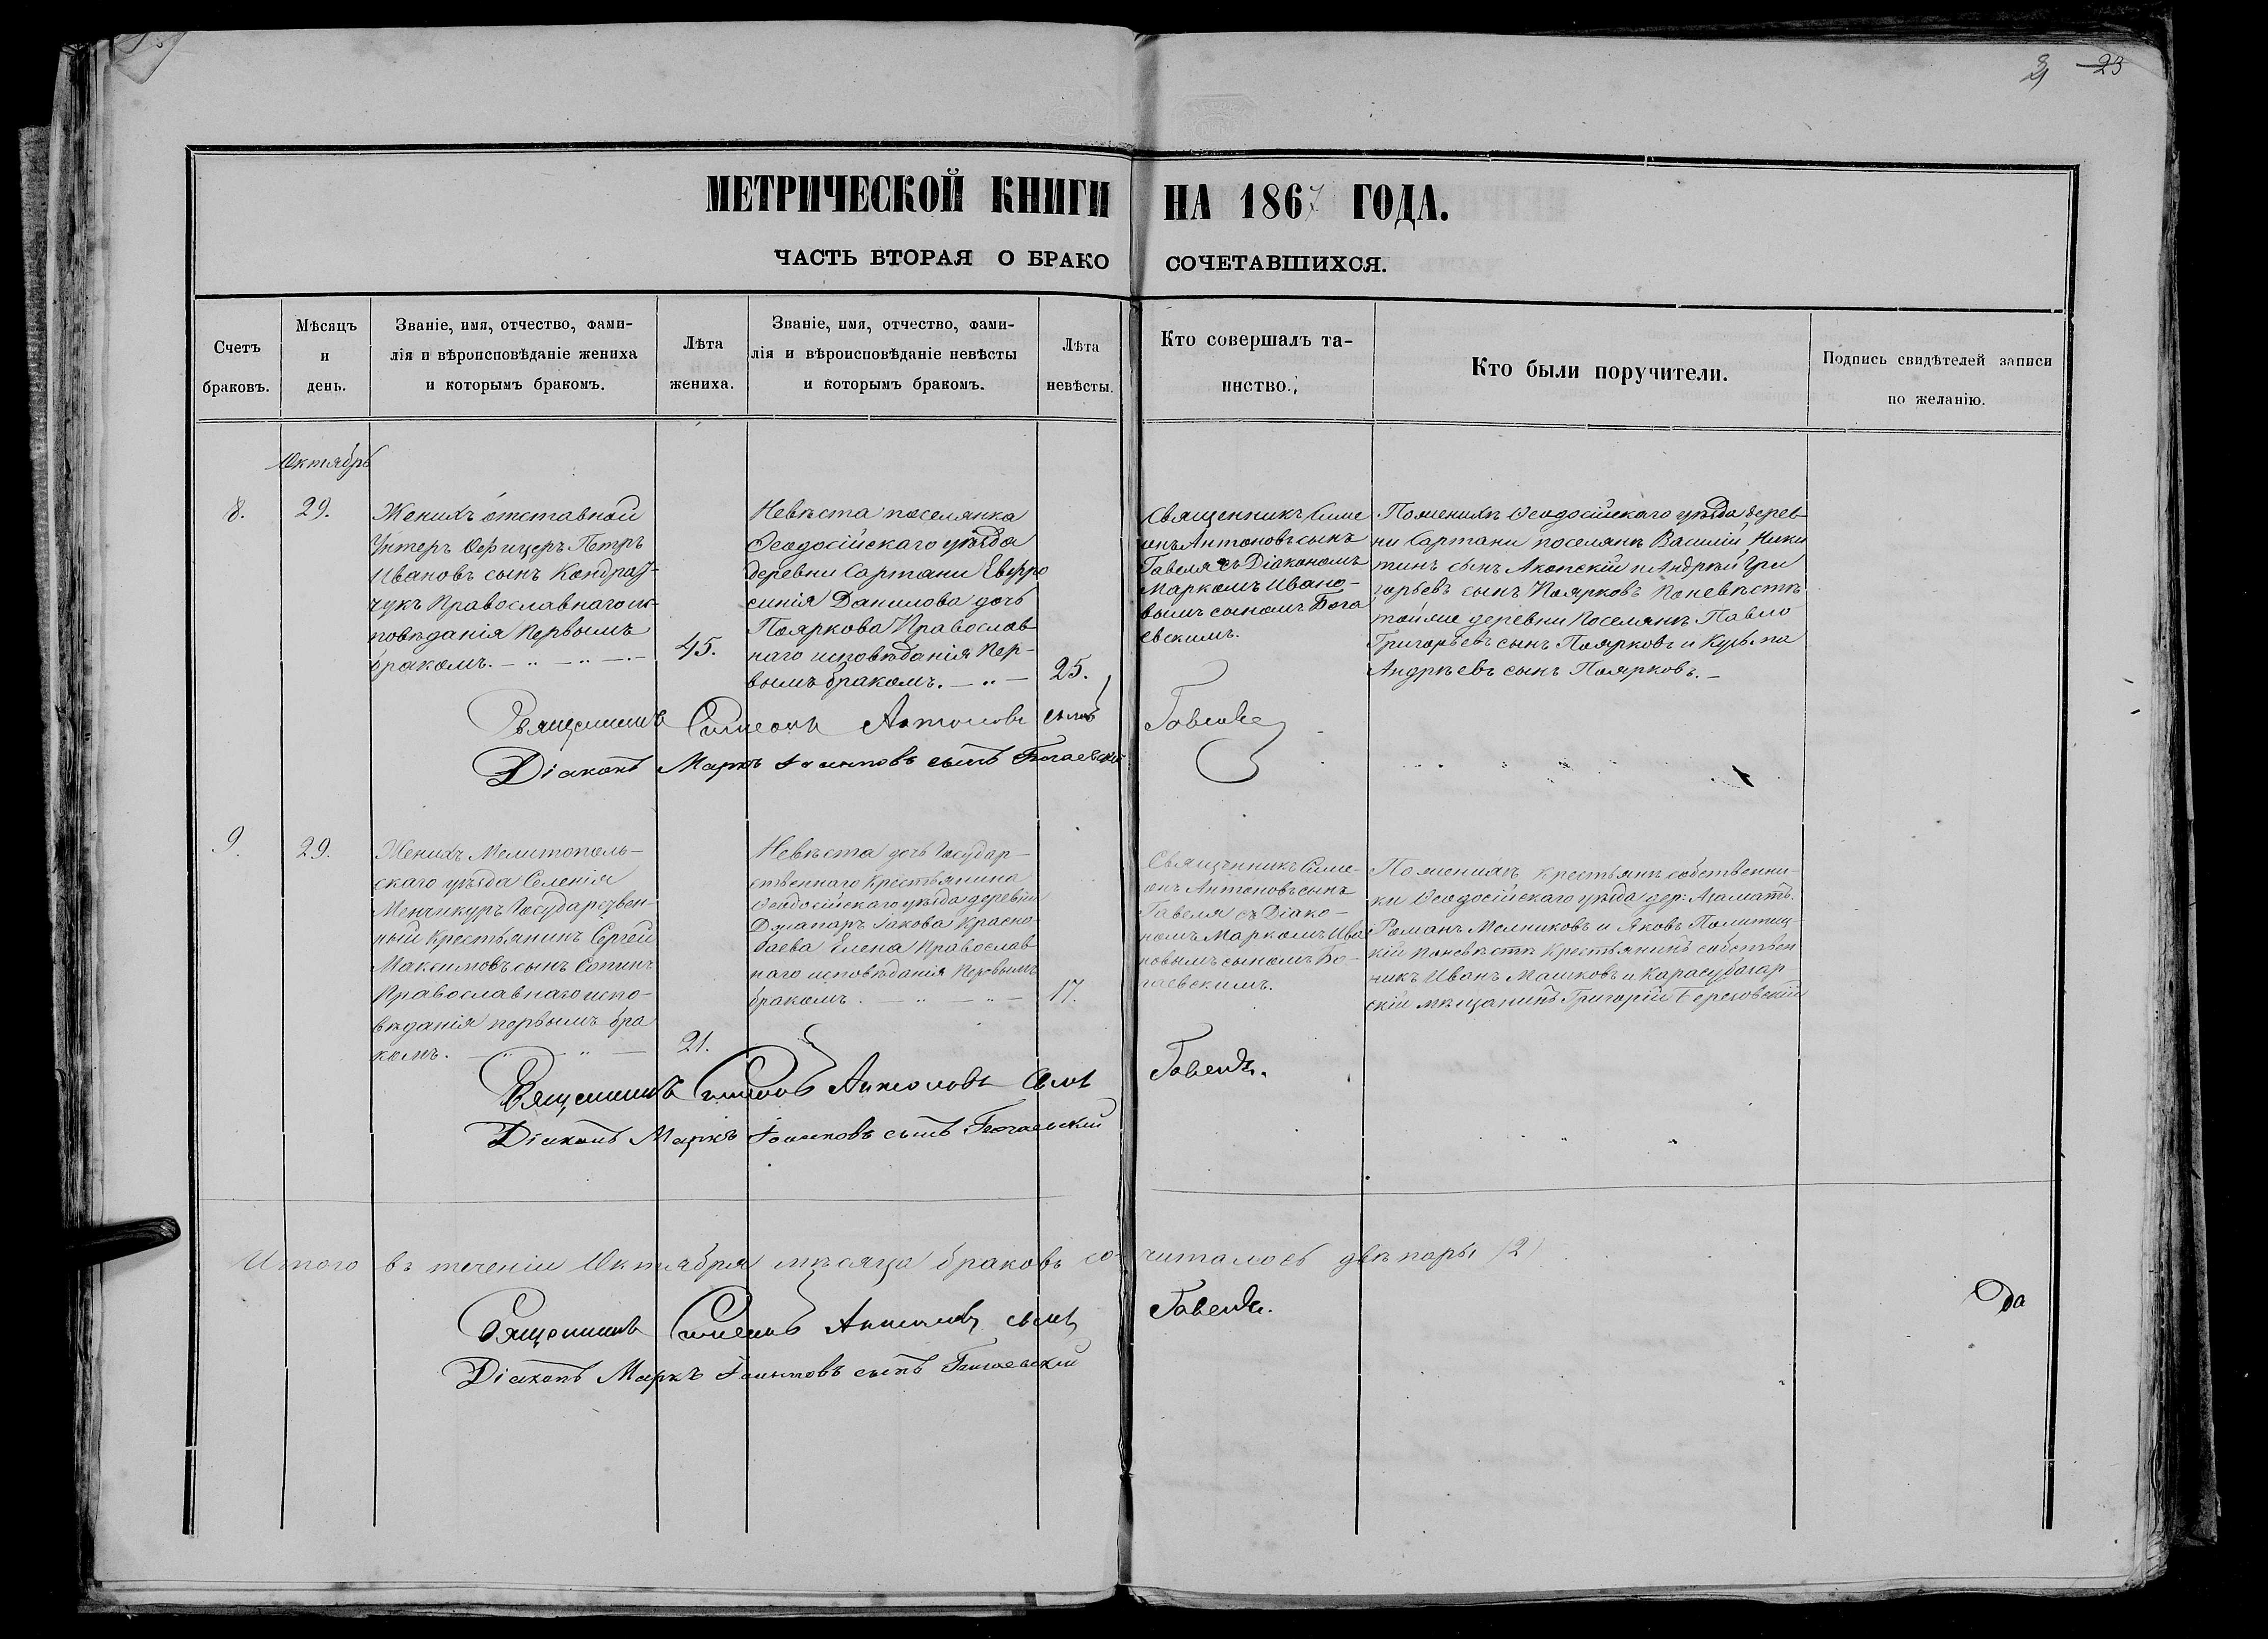 23
МЕТРИЧЕСКОЙ КНИГИ НА 1867 ГОДА.
ЧАСТЬ ВТОРАЯ О БРАКОСОЧЕТАВШИХСЯ.
Счетъ
браковъ.
Мѣсяцъ
и
день.
Званіе, имя, отчество, фами-
лія и вѣроисповѣданіе жениха
и которымъ бракомъ.
Лѣта
жениха.
Званіе, имя, отчество, фами-
лія и вѣроисповѣданіе невѣсты
и которымъ бракомъ.
Лѣта
невѣсты.
Кто совершалъ та-
инство.
Кто были поручители.
Подпись свидѣтелей записи
по желанію.
Октябрь
8.
29.
Женихъ отставной
Унтеръ Офицеръ Петръ
Ивановъ сынъ Кондрат-
чукъ Православнаго ис-
повѣданія Первымъ
бракомъ.
45.
Невѣста поселянка
Ѳеодосійскаго уѣзда
деревни Сартани Евфро
синія Данилова дочь
Пояркова Православ
наго исповѣданія Пер-
вымъ бракомъ.
25.
Священникъ Симе
онъ Антоновъ сынъ
Гавеля съ Діакономъ
Маркомъ Ивано-
вымъ сыномъ Бога
евскимъ.
Поженихѣ Ѳеодосійскаго уѣзда дерев
ни Сартани поселянъ Василій Ники
тинъ сынъ и Андрей Гри
горьевъ сынъ Поярковъ Поневѣстѣ
тойже деревни Поселянъ Павло
Григорьевъ сынъ Поярковъ и Кузьма
Андрѣевъ сынъ Поярковъ.
Священникъ Симеонъ Антоновъ сынъ Гавеля
Діаконъ Маркъ Іоанновъ сынъ Богаевскій
9.
29.
Женихъ Мелитополь-
скаго уѣзда Селенія
Менчикуръ Государствен-
ный Крестьянинъ Сергей
Максимовъ сынъ
Православнаго испо-
вѣданія первымъ бра
комъ.
21.
Невѣста дочь Государ-
ственнаго Крестьянина
Ѳеодосійскаго уѣзда деревни
Джапаръ Іакова Красно-
баева Елена Православ
наго исповѣданія Первымъ
бракомъ.
17.
Священникъ Симе-
онъ Антоновъ сынъ
Гавеля съ Діако-
номъ Маркомъ Ива
новымъ сыномъ Бо-
гаевскимъ.
Поженихѣ крестьянъ собственни-
ки Ѳеодосійскаго уѣзда дер:
Романъ Мелниковъ и Яковъ
Поневѣстѣ Крестьянинъ собствен
никъ Иванъ Машковъ и Карасубазар-
скій мѣщанинъ Григорій Березовскій
Священникъ Симеонъ Антоновъ сынъ Гавеля.
Діаконъ Маркъ Іоанновъ сынъ Богаевскій
Итого въ теченіи Октября мѣсяца браковъ сочиталось двѣ пары (2)
Священникъ Симеонъ Антоновъ сынъ Гавеля.
Діаконъ Маркъ Іоанновъ сынъ Богаевскій